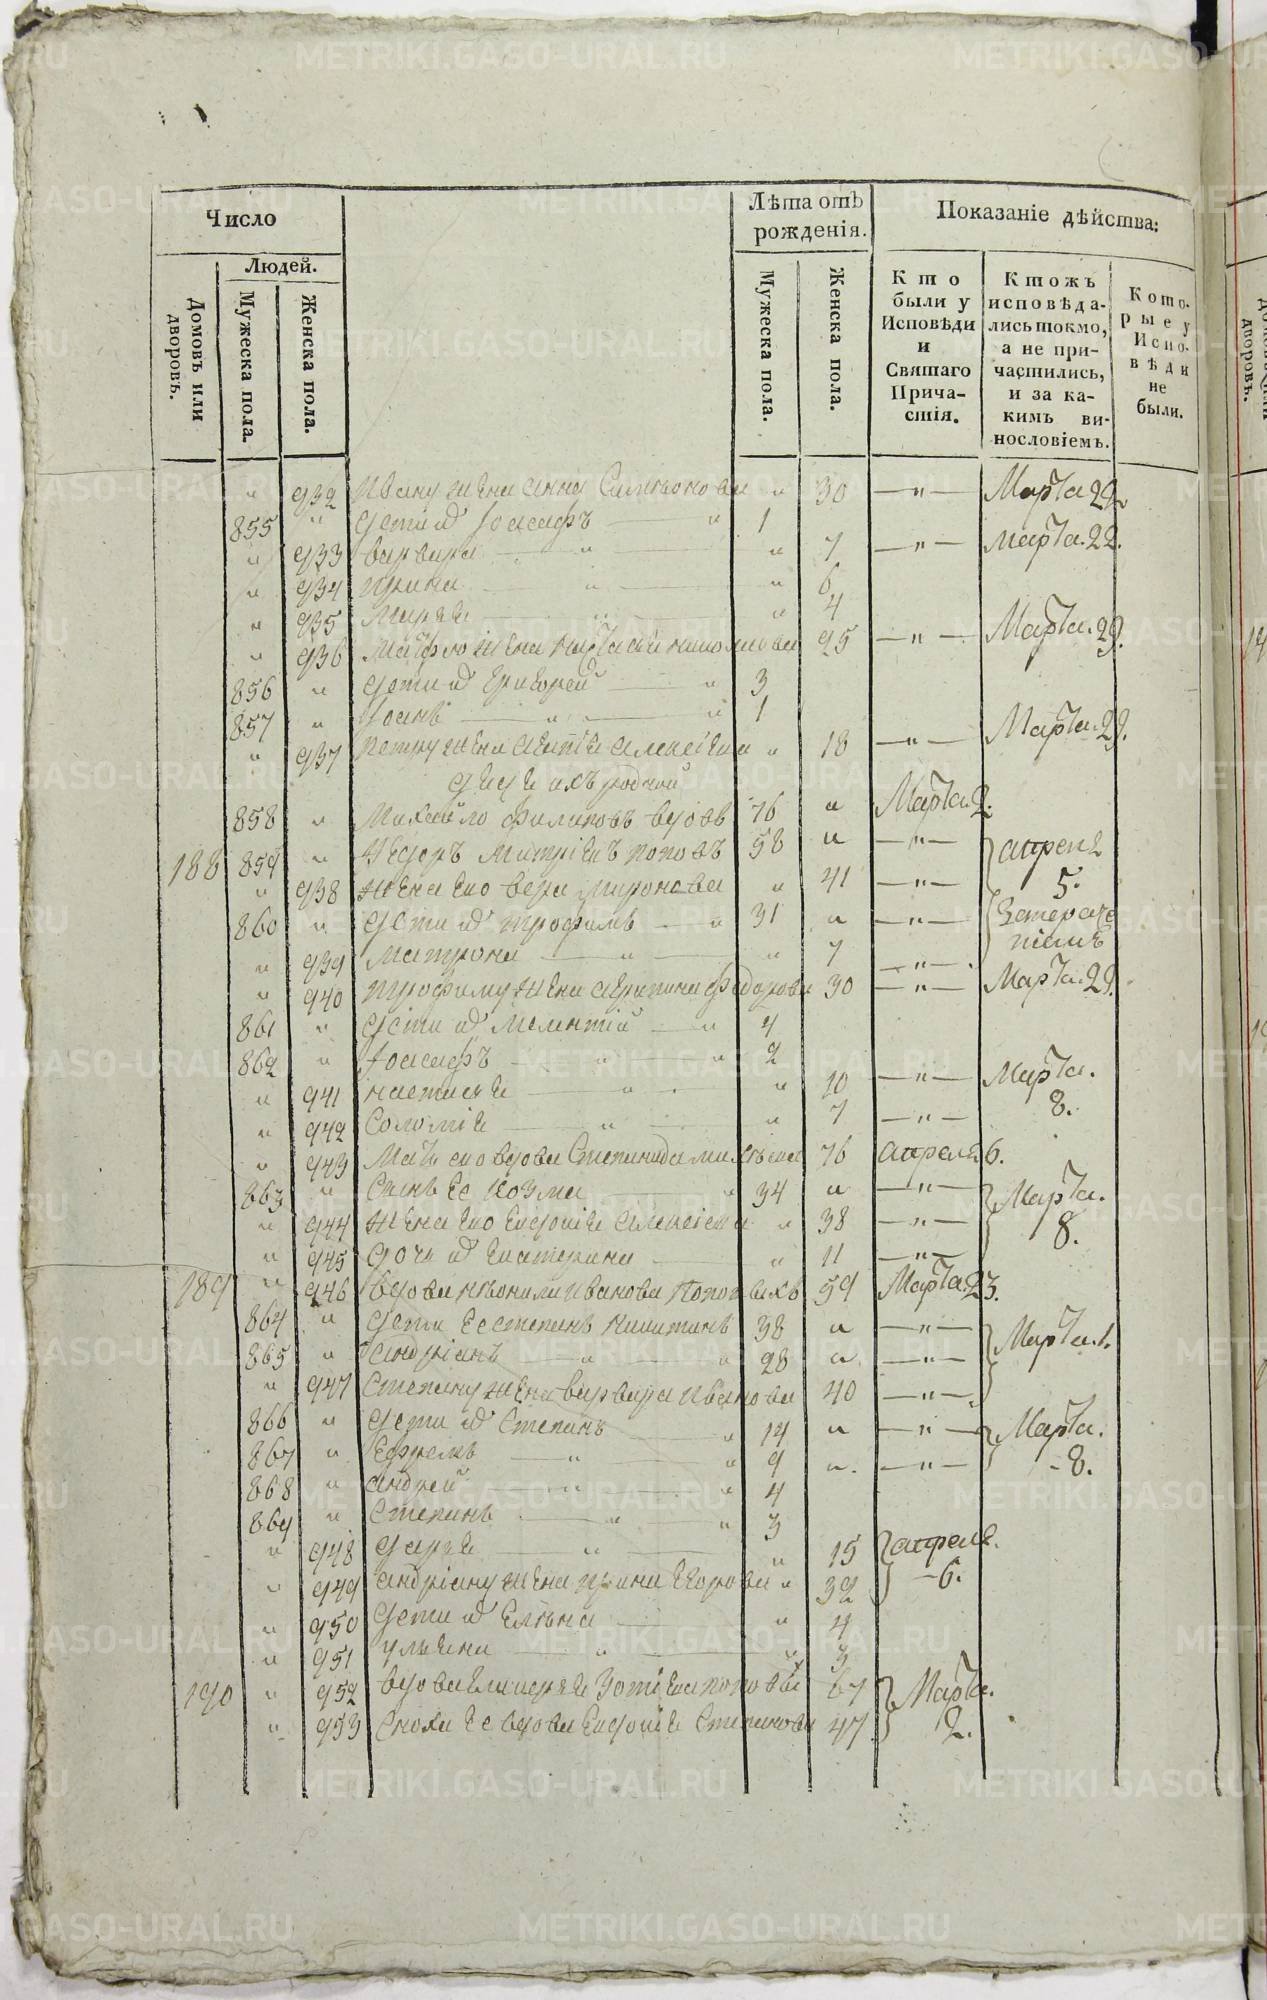 Число
Лѣта отъ рожденія.
Показаніе дѣйства:
Людей.
Домовъ или дворовъ.
Мужеска пола.
Женска пола.
Мужеска пола.
Женска пола.
Кто были у Исповѣди и Святаго Причастія.
Ктожъ исповѣдались токмо, а не причастились, и за какимъ винословіемъ.
Которые у Исповѣди не были.
" 932 Ивану жена анна " 30 —"— Марта 29
855 " дети их Иоасафъ — " 1
" 933 варвара — " — " 7 —"— Марта. 22.
" 934 ирина — " — " 6
" 935 Марѳа — " — " 4
" 936 жена " 25 —"— Марта. 29.
856 " дети их Григорей — " 3
857 " Иоанъ — " — " 1
" 937 Петру жена алексіева " 18 —"— Марта. 29.
858 " Михайло Филиповъ вдовъ 76 " Марта. 2.
188 859 " Ѳедоръ поповъ 58 " —"— апреля
" 938 жена ево вера миронова " 41 —"— 5.
860 " дети их трофимъ — " 31 " —"—
" 939 Матрона — " — " 7 —"—
" 940 трофиму жена Федорова 30 —"— Марта. 29.
861 " дети их — " 4
862 " Иоасафъ — " — " 2
" 941 настасія — " — " 10 —"— Марта.
" 942 Соломія — " — " 7 —"— 8.
" 943 Мать ево вдова Степанида 76 апреля 6.
863 " Сынъ Ее Козма — " 34 " —"— Марта.
" 944 жена ево Евдокіѧ алексіева " 38 —"— 8.
" 945 дочь их Екатерина — " 11 —"—
189 " 946 вдова Иванова 59 Марта. 23.
864 " дети Ее степанъ никитинъ 38 " —"— Марта. 1.
865 " андріанъ — " — " 28 " —"—
" 947 Степану жена варвара Иванова 40 —"—
866 " дети их Степанъ — " 14 " —"— Марта.
867 " Ефремъ — " — " 9 " —"— 8.
868 " андрей — " — " 4
869 " Степанъ — " — " 3
" 948 дарѧ — " — " 15 апреля.
" 949 андріану жена ирина Егорова " 32 6.
" 950 дети их Елена — " 4
" 951 ульяна — " — " 3
190 " 952 вдова 67 Марта.
" 953 Сноха Ее вдова Евдокіѧ Степанова 47. 2.
METRIKI.GASO-URAL.RU